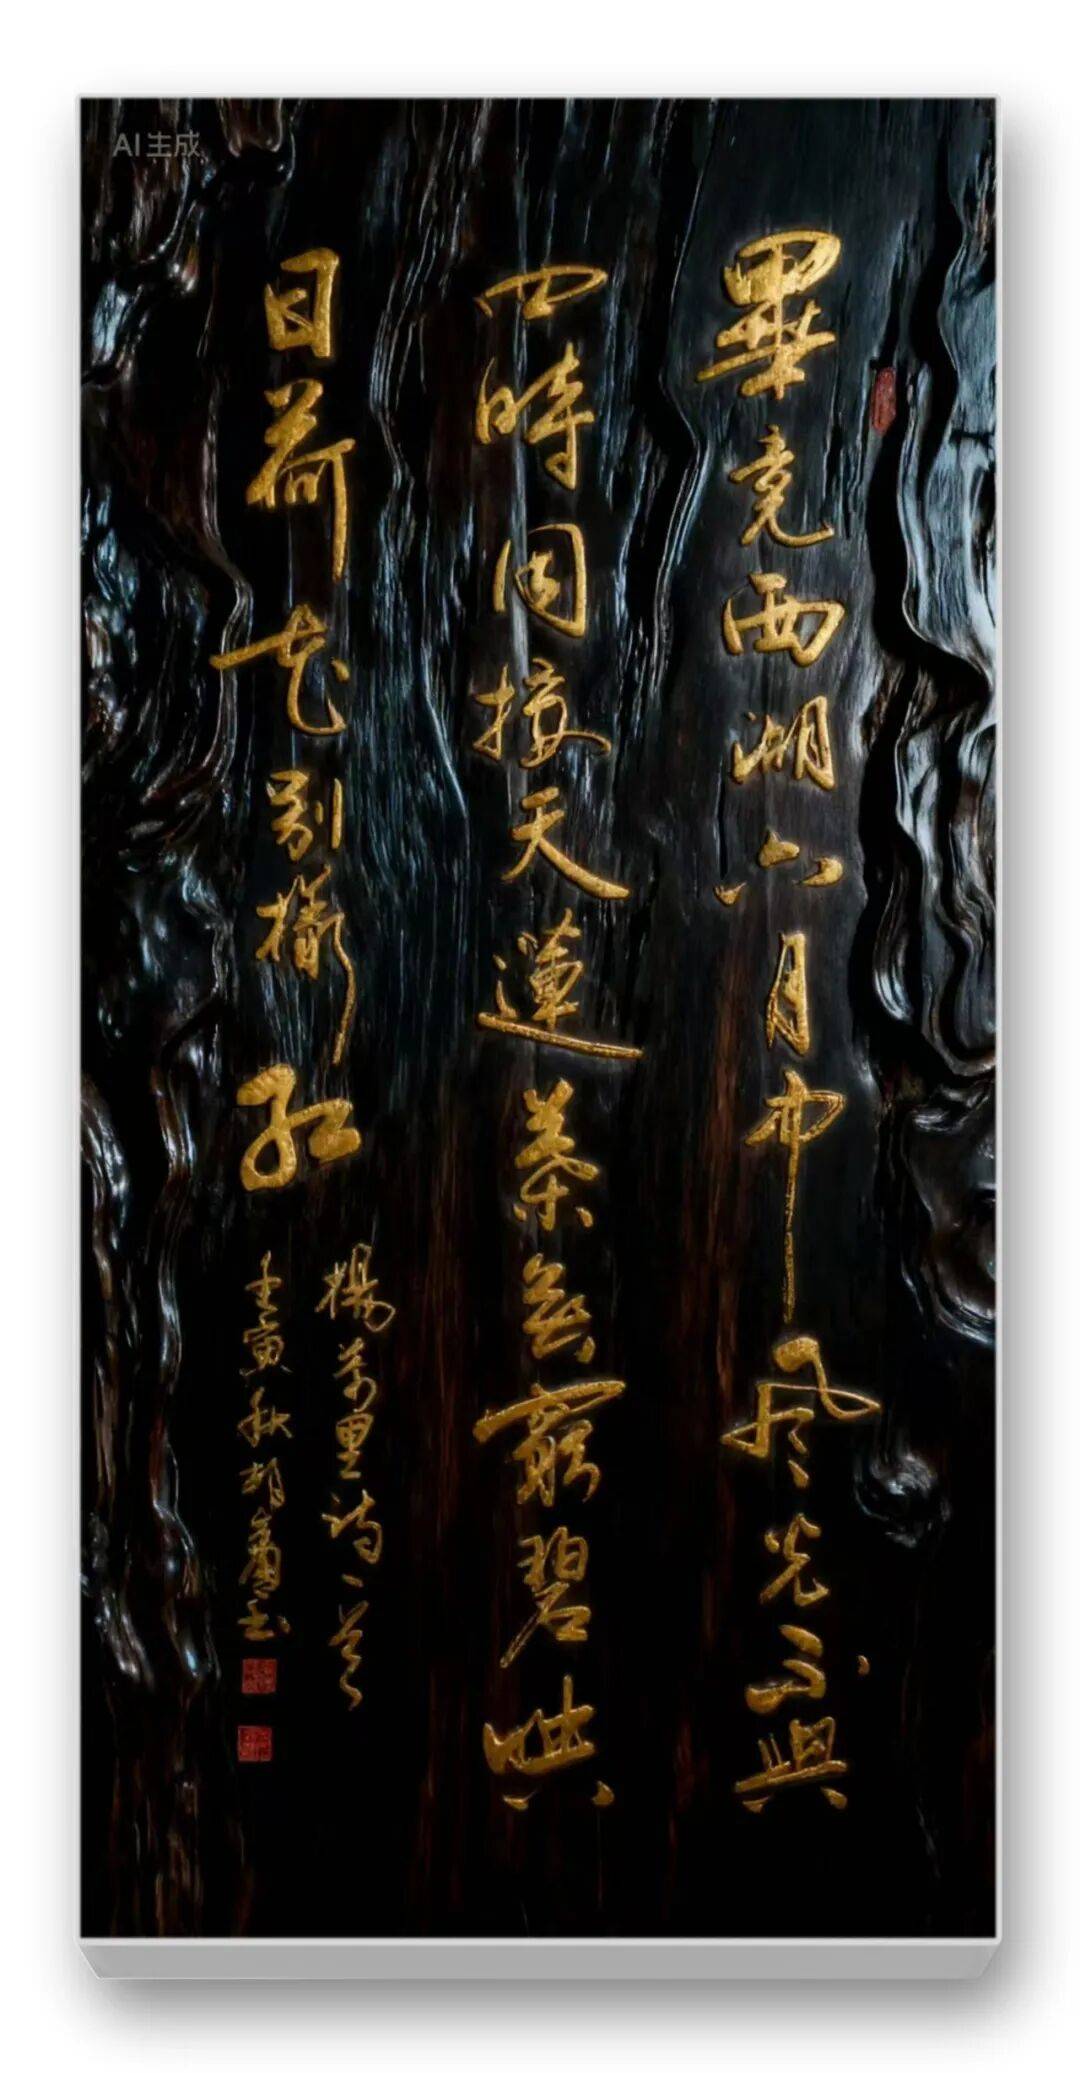 AI生成
畢竟西湖六月中風光不與
四時同接天蓮葉無窮碧映
日荷花別樣紅
楊萬里詩一首
壬寅秋胡